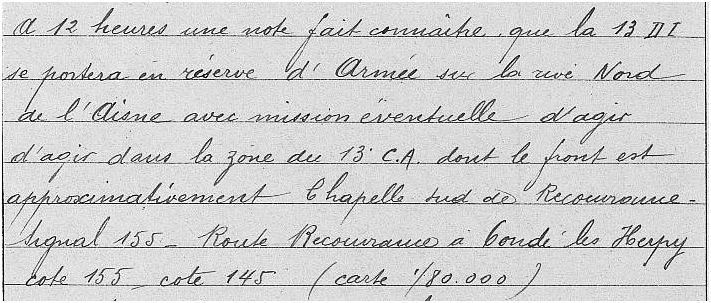 A 12 heures une note fait connaître que la 13 DI
se portera en réserve d'Armée sur la rive Nord
de l'Aisne avec mission éventuelle d'agir
d'agir dans la zone du 13e C.A. dont le front est
approximativement Chapelle sud de Recouvrance -
Signal 155 - Route Recouvrance à Condé les Herpy
cote 155 - cote 145 (carte 1/80.000)